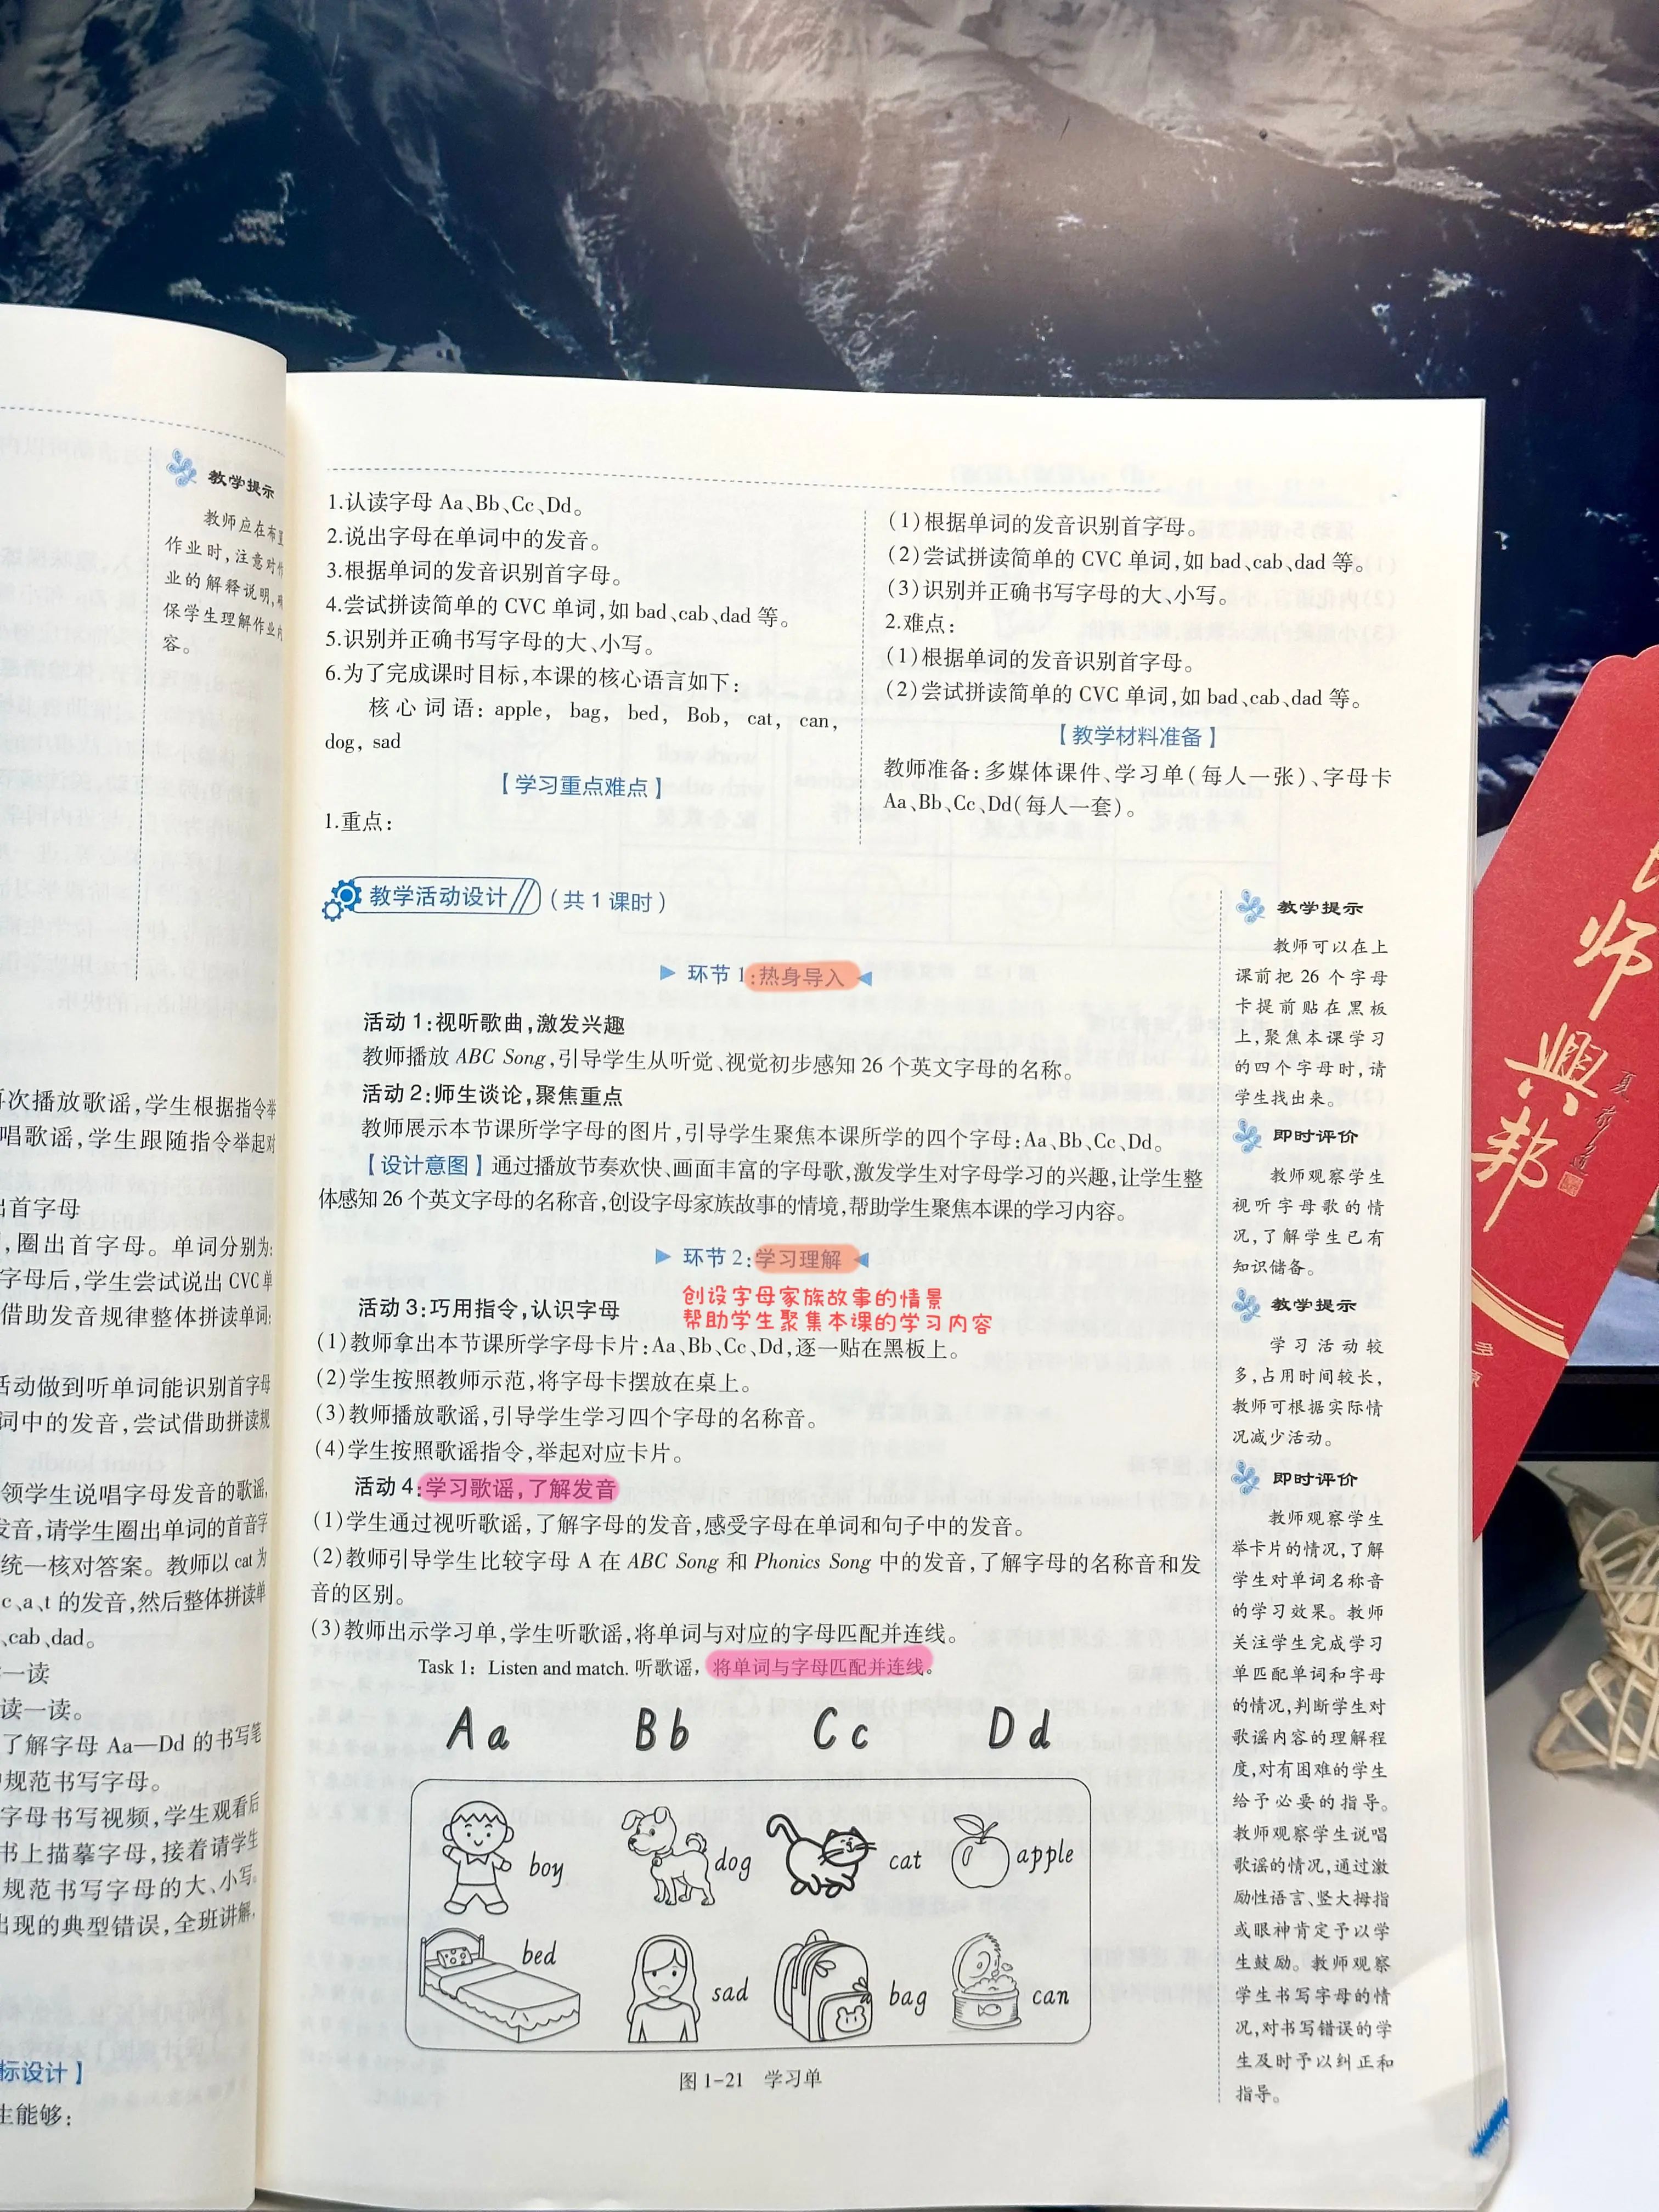 教学提示
教师应在布置
作业时,注意对
业的解释说明,
保学生理解作业内
容。
再次播放歌谣,学生根据指令举
唱歌谣,学生跟随指令举起对
出首字母
,圈出首字母。单词分别为:
字母后,学生尝试说出 CVC 单
借助发音规律整体拼读单词:
活动做到听单词能识别首字母
词中的发音,尝试借助拼读规
领学生说唱字母发音的歌谣,
发音,请学生圈出单词的首音字
统一核对答案。教师以 cat 为
c、a、t 的发音,然后整体拼读单
、cab、dad。
一读
读一读。
了解字母 Aa—Dd 的书写笔
规范书写字母。
字母书写视频,学生观看后
书上描摹字母,接着请学生
规范书写字母的大、小写。
出现的典型错误,全班讲解,
标设计】
生能够:
1.认读字母 Aa、Bb、Cc、Dd。
2.说出字母在单词中的发音。
3.根据单词的发音识别首字母。
4.尝试拼读简单的 CVC 单词,如 bad、cab、dad 等。
5.识别并正确书写字母的大、小写。
6.为了完成课时目标,本课的核心语言如下:
核心词语: apple, bag, bed, Bob, cat, can,
dog, sad
【学习重点难点】
1.重点:
(1)根据单词的发音识别首字母。
(2)尝试拼读简单的 CVC 单词,如 bad、cab、dad 等。
(3)识别并正确书写字母的大、小写。
2.难点:
(1)根据单词的发音识别首字母。
(2)尝试拼读简单的 CVC 单词,如 bad、cab、dad 等。
【教学材料准备】
教师准备:多媒体课件、学习单(每人一张)、字母卡
Aa、Bb、Cc、Dd(每人一套)。
教学活动设计 (共 1 课时)
环节 1:热身导入
活动 1:视听歌曲,激发兴趣
教师播放 ABC Song,引导学生从听觉、视觉初步感知 26 个英文字母的名称。
活动 2:师生谈论,聚焦重点
教师展示本节课所学字母的图片,引导学生聚焦本课所学的四个字母:Aa、Bb、Cc、Dd。
【设计意图】通过播放节奏欢快、画面丰富的字母歌,激发学生对字母学习的兴趣,让学生整
体感知 26 个英文字母的名称音,创设字母家族故事的情境,帮助学生聚焦本课的学习内容。
环节 2:学习理解
创设字母家族故事的情景
帮助学生聚集本课的学习内容
活动 3:巧用指令,认识字母
(1)教师拿出本节课所学字母卡片:Aa、Bb、Cc、Dd,逐一贴在黑板上。
(2)学生按照教师示范,将字母卡摆放在桌上。
(3)教师播放歌谣,引导学生学习四个字母的名称音。
(4)学生按照歌谣指令,举起对应卡片。
活动 4:学习歌谣,了解发音
(1)学生通过视听歌谣,了解字母的发音,感受字母在单词和句子中的发音。
(2)教师引导学生比较字母 A 在 ABC Song 和 Phonics Song 中的发音,了解字母的名称音和发
音的区别。
(3)教师出示学习单,学生听歌谣,将单词与对应的字母匹配并连线。
Task 1: Listen and match. 听歌谣,将单词与字母匹配并连线。
Aa Bb Cc Dd
boy dog cat apple
bed sad bag can
图 1-21 学习单
教学提示
教师可以在上
课前把 26 个字母
卡提前贴在黑板
上,聚焦本课学习
的四个字母时,请
学生找出来。
即时评价
教师观察学生
视听字母歌的情
况,了解学生已有
知识储备。
教学提示
学习活动较
多,占用时间较长,
教师可根据实际情
况减少活动。
即时评价
教师观察学生
举卡片的情况,了解
学生对单词名称音
的学习效果。教师
关注学生完成学习
单匹配单词和字母
的情况,判断学生对
歌谣内容的理解程
度,对有困难的学生
给予必要的指导。
教师观察学生说唱
歌谣的情况,通过激
励性语言、竖大拇指
或眼神肯定予以学
生鼓励。教师观察
学生书写字母的情
况,对书写错误的学
生及时予以纠正和
指导。
师
興
邦